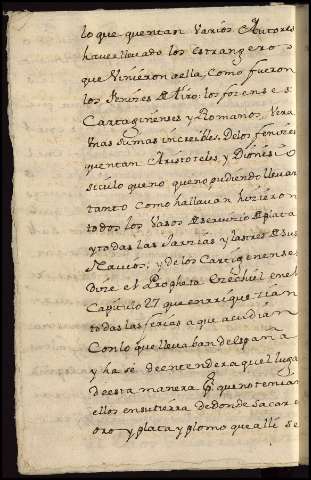 lo que quentan Varios Autores
haver llevado los estrangeros
que Vinieron a ella, como fueron
los fenizes de tiro, los forenses
Cartaginenses y Romanos, Vera
Unas sumas increibles. De los fenizes
quentan Aristoteles y Diones
siculo que no pudiendo llevar
tanto como hallavan hizieron
todos los Vasos de servicio de plata
y todas las Jarzias y lastres de sus
Navios, y de los Cartaginenses
Dize el Propheta Ezechiel en el
Capitulo 27 que enrriquezian
todas las ferias a que acudian
Con lo que llevaban de españa
y ha se de entender aquel lugar
de esta manera que no tenian
ellos en su tierra de donde sacar
oro y plata y plomo que alli se